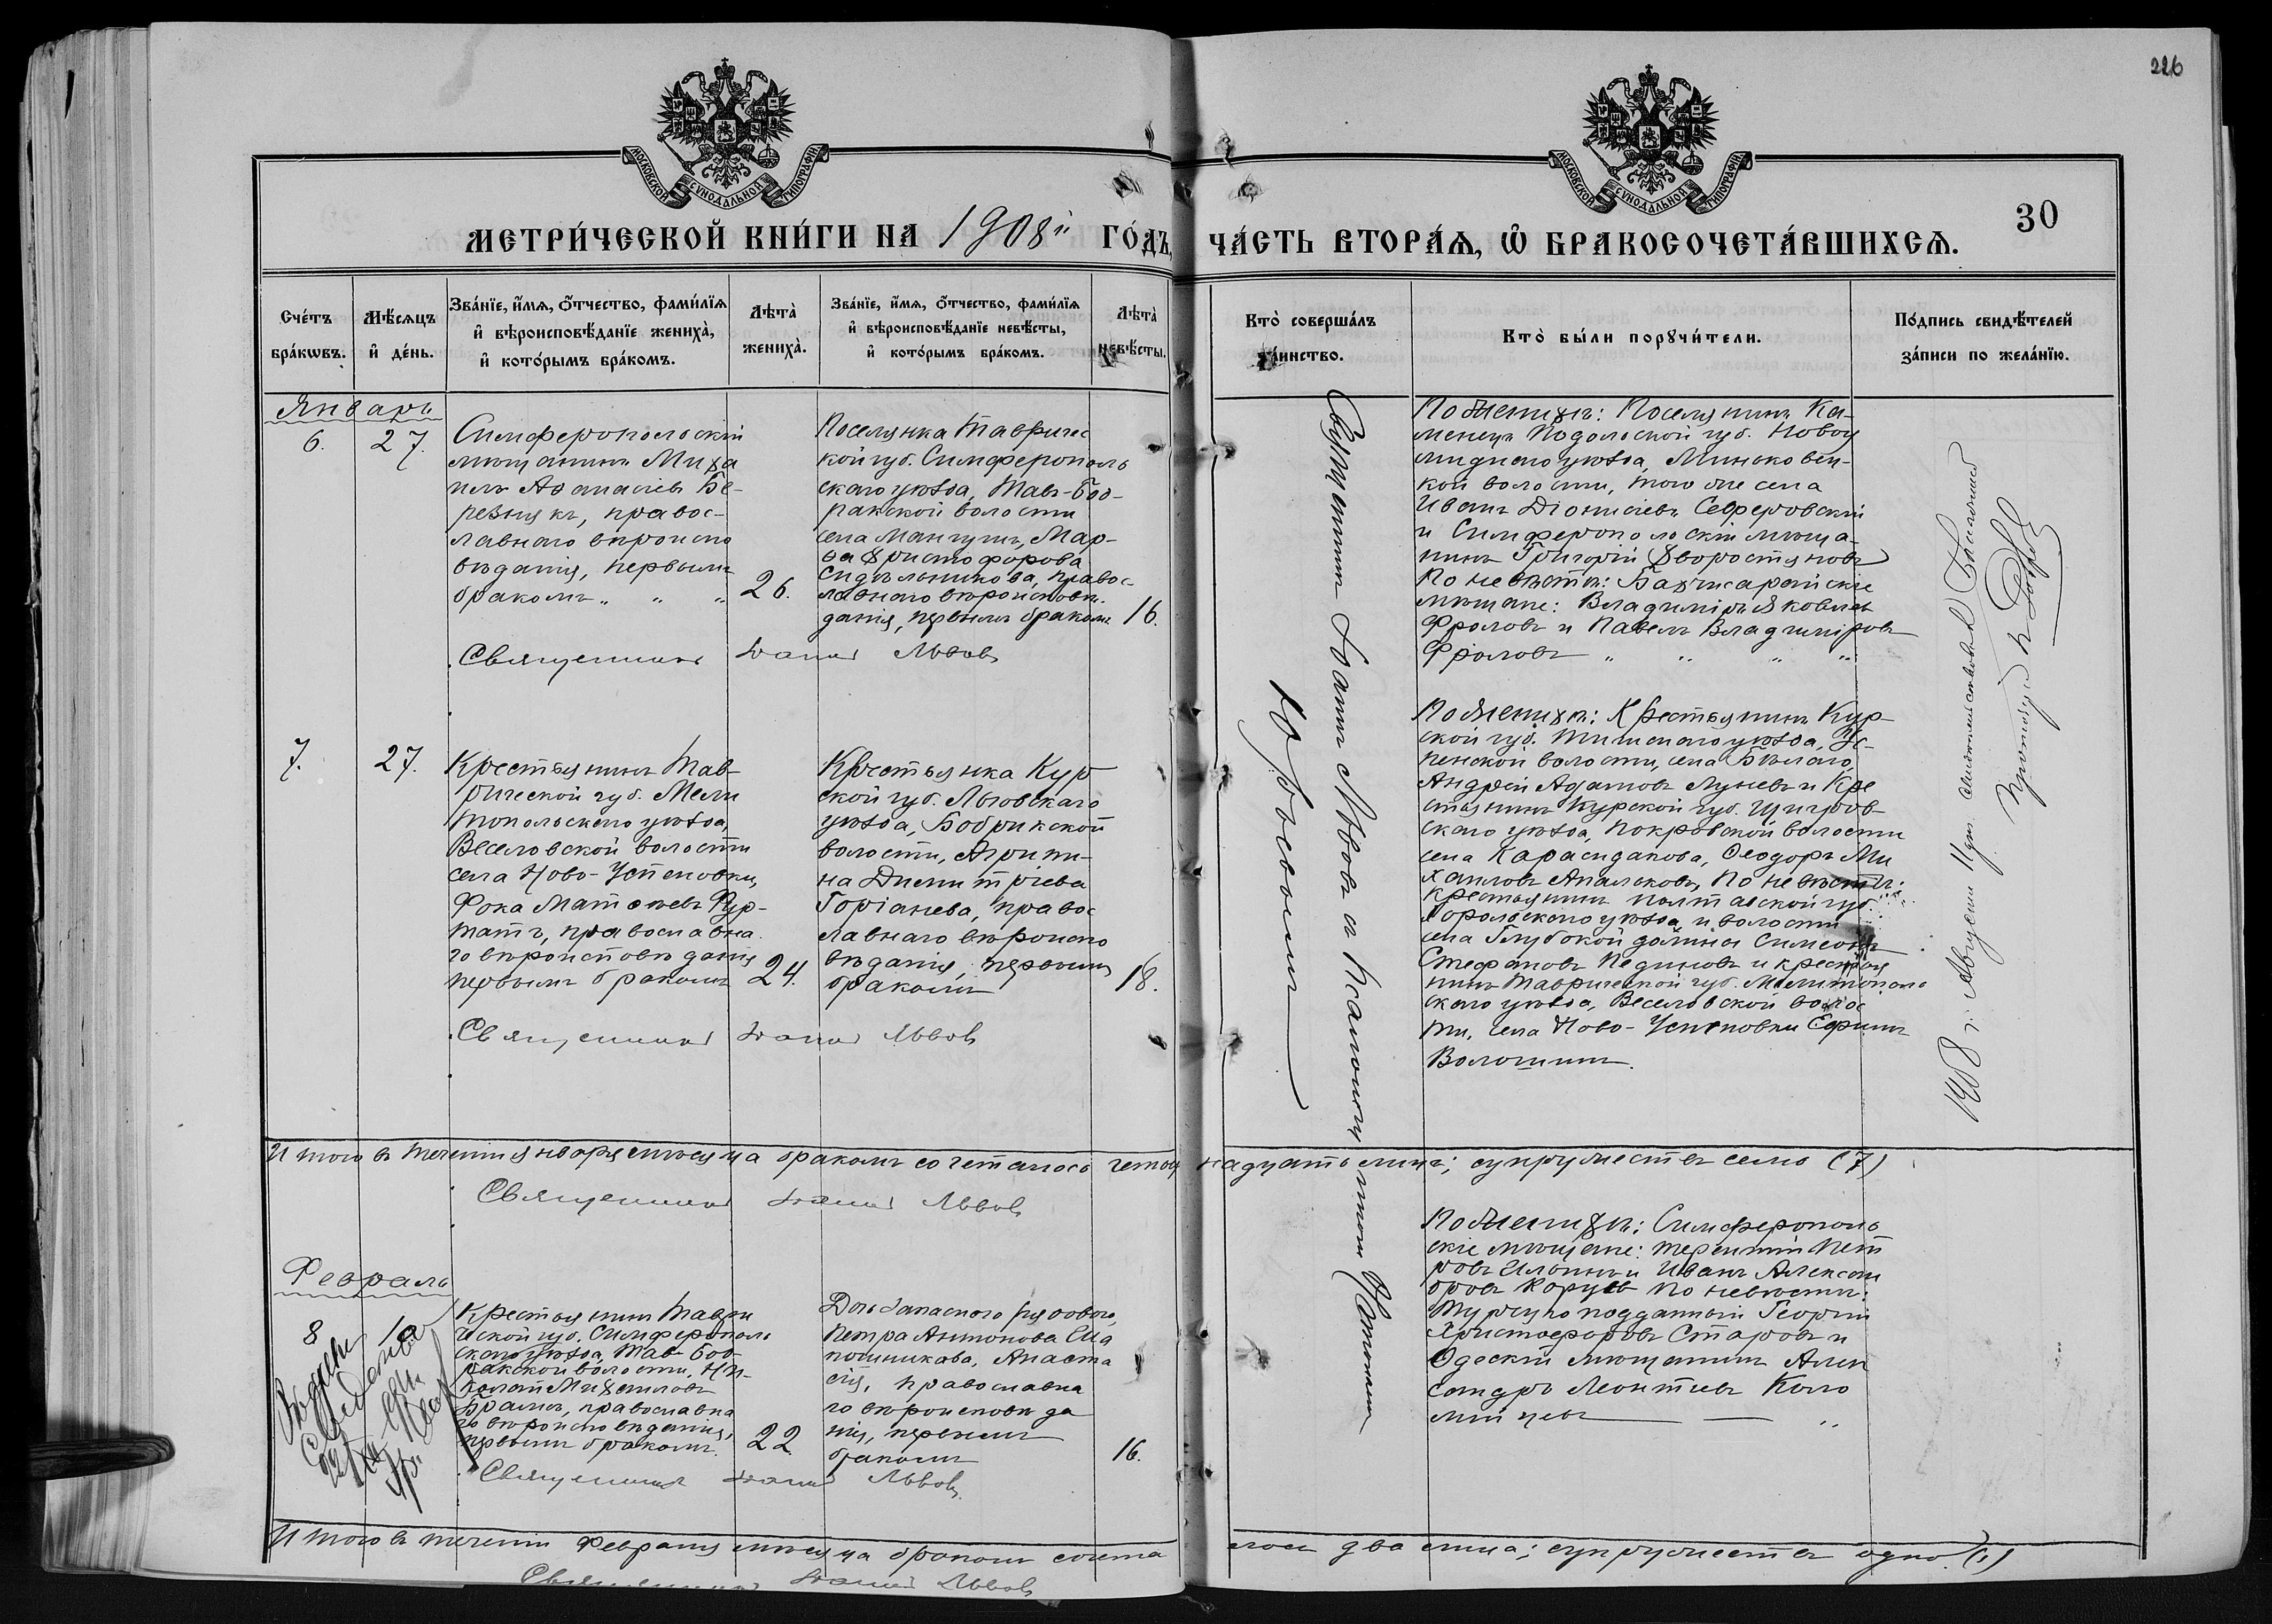 226
МОСКОВСКОЙ СУНОДАЛЬНОЙ ТИПОГРАФІИ
МОСКОВСКОЙ СУНОДАЛЬНОЙ ТИПОГРАФІИ
МЕТРИ́ЧЕСКОЙ КНИ́ГИ НА 1908й ГО́ДЪ,
ЧА́СТЬ ВТОРА́Ѧ, Ѽ БРАКОСОЧЕТА́ВШИХСѦ.
30
Сче́тъ
бра́кѡвъ.
Мѣ́сѧцъ
и҆ де́нь.
Зва́нїе, и҆́мѧ, ѻ҆́тчество, фами́лїѧ
и҆ вѣроисповѣ́данїе жениха̀,
и҆ кото́рымъ бра́комъ.
Лѣта̀
жениха̀.
Зва́нїе, и҆́мѧ, ѻ҆́тчество, фами́лїѧ
и҆ вѣроисповѣ́данїе невѣ́сты,
и҆ кото́рымъ бра́комъ.
Лѣта̀
невѣ́сты.
Кто̀ соверша́лъ
та́инство.
Кто̀ бы́ли порꙋчи́тели.
По́дпись свидѣ́телей
за́писи по жела́нїю.
Январь
6.
27.
Симферопольскій
мѣщанинъ Миха
илъ Аѳанасіевъ Бе-
резнякъ, правос-
лавнаго вѣроиспо
вѣданія, первымъ
бракомъ „ „ „
26.
Поселянка Тавричес
кой губ. Симферополь
скаго уѣзда, Тав-Бод-
ракской волости
села Мангушъ, Мар-
ѳа Христофорова
Сидѣльникова, правос
лавнаго вѣроисповѣ-
данія, первымъ бракомъ
16.
Священникъ Іоаннъ Львовъ
По женихѣ: Поселянинъ Ка-
менецъ Подольской губ. Новоу
шицкаго уѣзда, Миньковец-
кой волости, того же села
Иванъ Діонисіевъ Сеферовскій
и Симферопольскій мѣща-
нинъ Григорій Хворостяновъ
По невѣстѣ: Бахчисарайскіе
мѣщане: Владиміръ Яковлевъ
Фроловъ и Павелъ Владиміровъ
Фроловъ „ „ „ „
7.
27.
Крестьянинъ Тав-
рической губ. Мели
топольскаго уѣзда,
Веселовской волости
села Ново-Успеновки,
Фока Матѳеевъ Фур-
татъ, православна
го вѣроисповѣданія
первымъ бракомъ
24.
Крестьянка Кур
ской губ. Льговскаго
уѣзда, Бобрикской
волости, Агрипи-
на Дмитріева
Горіанева, правос
лавнаго вѣроиспо
вѣданія, первымъ
бракомъ
18.
Священникъ Іоаннъ Львовъ
По женихѣ: Крестьянинъ Кур-
ской губ. Тимскаго уѣзда, Ус-
пенской волости, села Бѣлаго,
Андрей Адамовъ Луневъ и Кре
стьянинъ Курской губ. Щигров-
скаго уѣзда, Покровской волости
села Карасидакова, Ѳеодоръ Ми
хаиловъ Апальковъ, По невѣстѣ:
крестьянинъ Полтавской губ.
Хорольскаго уѣзда и волости
села Глубокой долины Симеонъ
Стефановъ Педиковъ и крестья
нинъ Таврической губ. Мелитополь
скаго уѣзда, Веселовской волос
ти, села Ново-Успеновки Ефимъ
Волошинъ.
Священникъ Іоаннъ Львовъ съ Псаломщикомъ
1908 г. Августа 11 дня свидѣтельствовалъ
Протоіерей
Итого въ теченіи января мѣсяца бракомъ сочеталось четыр надцать лицъ; супружествъ семь (7)
Священникъ Іоаннъ Львовъ
Февраль
8
10
Крестьянинъ Таври
ческой губ. Симферополь
скаго уѣзда, Тав-Бод-
ракской волости, Ни-
колай Михаиловъ
Браминъ, православна
го вѣроисповѣданія,
первымъ бракомъ.
22.
Дочь запаснаго рядоваго,
Петра Антонова Сыа
потникова, Анаста
сія, православна
го вѣроисповѣда
нія, первымъ
бракомъ
16.
Священникъ Іоаннъ Львовъ
По женихѣ: Симферополь
скіе мѣщане: Терентій Пет
ровъ Ильинъ и Иванъ Алексан
дровъ Коруевъ По невѣстѣ:
Турецко подданный Георгій
Христофоровъ Старовъ и
Одесскій мѣщанинъ Алек
сандръ Леонтіевъ Коло
мійцевъ — — „
Итого въ теченіи Февраля мѣсяца бракомъ сочета лось два лица; супружествъ одно. (1)
Священникъ Іоаннъ Львовъ